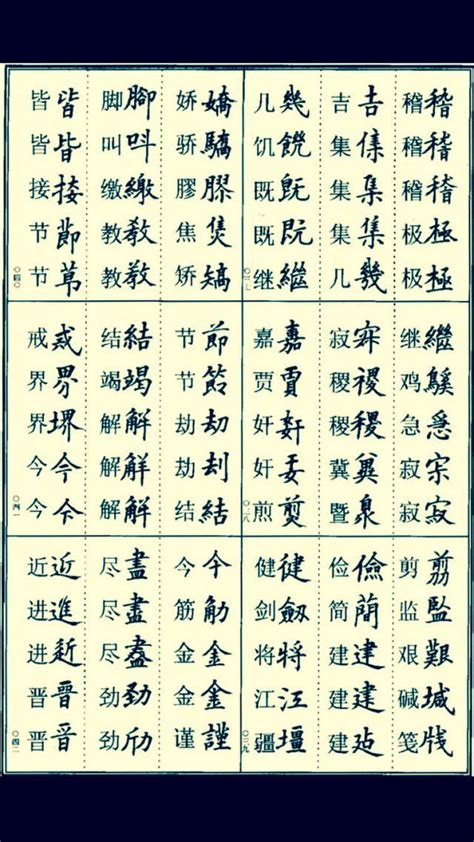 稽稽 稽稽 稽稽 极極 极極
吉吉 集 集集 集集 几幾
几幾 饥饑 既既 既既 继繼
〇三七
继繼 鸡 急急 寂 寂寂
寂 稷稷 稷稷 冀 暨
嘉嘉 贾賈 奸奸 奸 煎煎
〇三八
剪剪 监監 艰艱 碱堿 笺牋
俭儉 简簡 建建 建建 建
健健 剑劔 将将 江江 疆壃
〇三九
娇嬌 骄驕 膠膠 焦 矫矯
脚腳 叫 缴繳 教教 教教
皆皆 皆皆 接接 节節 节
〇四〇
节節 节 劫劫 劫刦 结結
结結 竭竭 解解 解解 解解
戒戒 界界 界堺 今今 今今
〇四一
今今 筋 金金 金金 谨謹
尽盡 尽盡 尽 劲勁 劲
近近 进進 进 晋晉 晋晋
〇四二